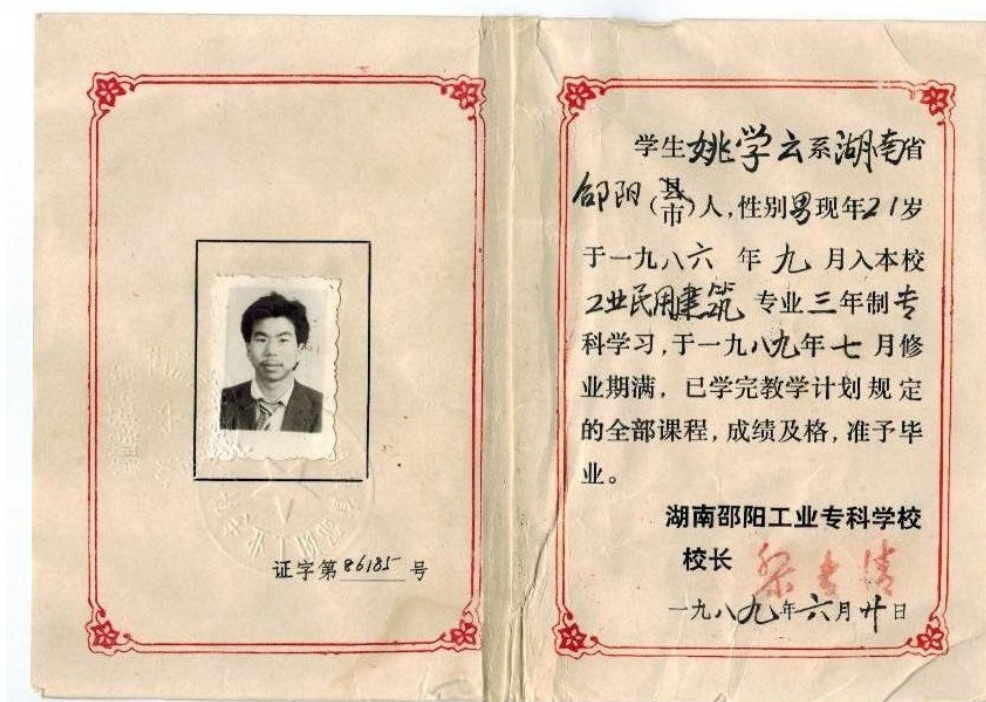 证字第86185号
学生姚学云系湖南省
邵阳（县市）人，性别男现年21岁
于一九八六 年 九 月入本校
工业民用建筑 专业三年制专
科学习，于一九八九年七月修
业期满，已学完教学计划规定
的全部课程，成绩及格，准予毕
业。
湖南邵阳工业专科学校
校长
一九八九年六月廿日